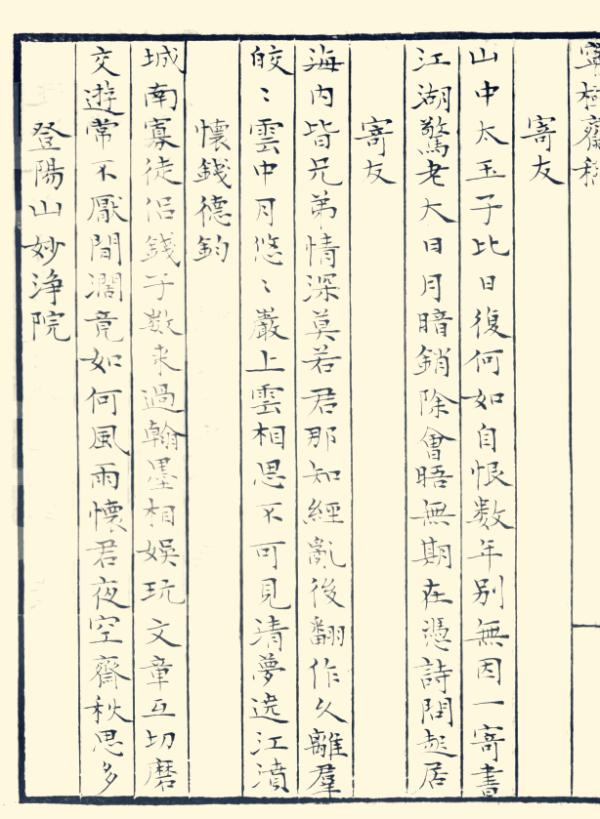 寧極齋稿
寄友
山中太玉子比日復何如自恨数年别無因一寄書
江湖驚老大日月暗銷除會晤無期在憑詩問起居
寄友
海内皆兄弟情深莫若君那知經亂後翻作久離羣
皎〻雲中月悠〻巖上雲相思不可見清夢遶江濆
懷錢德鈞
城南寡徒侣錢子数來過翰墨相娛玩文章互切磨
交遊常不厭間濶竟如何風雨懷君夜空齋秋思多
登陽山妙淨院